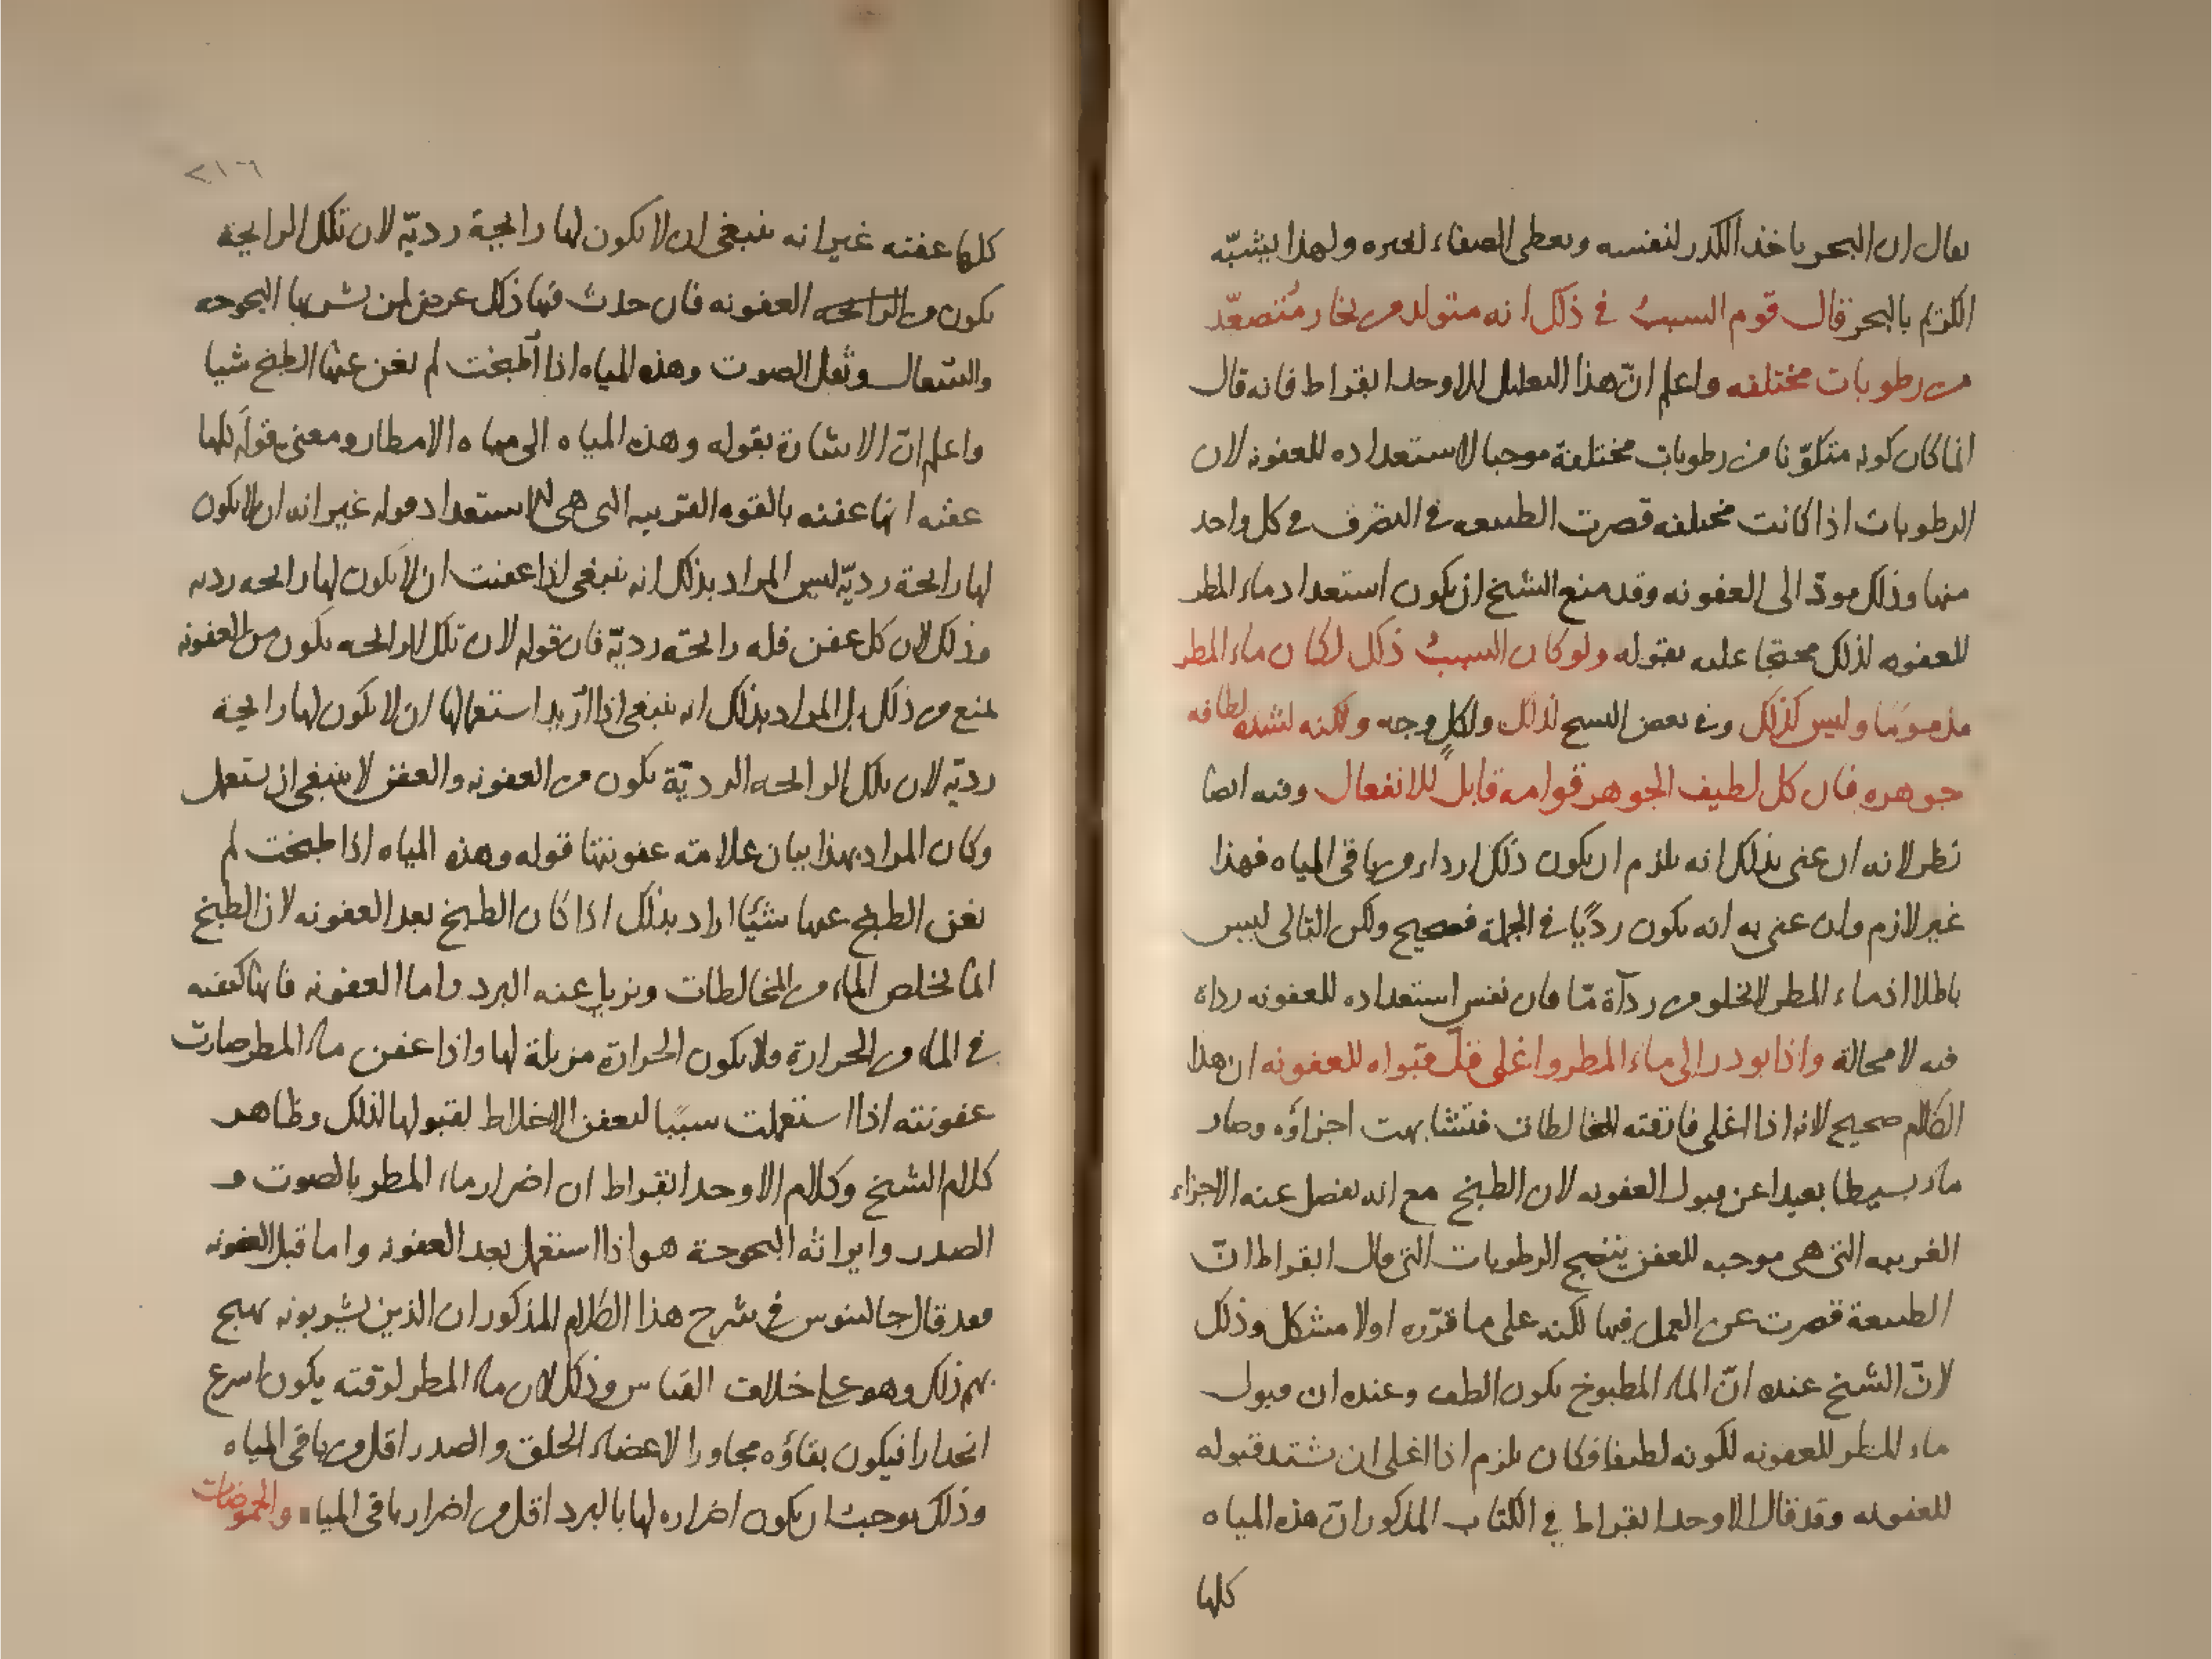 يقال ان البحر ياخذ الكدر لنفسه ويعطى الصفاء لغيره ولهذا يشبّه
الكريم بالبحر قال قوم السبب في ذلك انه متولد من بخار مُتصعّد
من رطوبات مختلفه واعلم انّ هذا التعليل للاوحد ابقراط فانه قال
انما كان كونه متكوّنا من رطوبات مختلفة موجبا لاستعداده للعفونه لان
الرطوبات اذا كانت مختلفه قصرت الطبيعه في التصرف في كل واحد
منها وذلك مودّ الى العفونه وقد منع الشيخ ان يكون استعداد ماء المطر
للعفونه لذلك محتجا عليه بقوله ولو كان السببُ ذلك لكان ماء المطر
مذموما وليس كذلك وفي بعض النسخ لذلك ولكل وجه ولكنه لشده لطافه
جوهره فان كل لطيف الجوهر قوامه قابلٌ للانفعال وفيه ايضا
نظر لانه ان عنى بذلك انه يلزم ان يكون ذلك اردا من باقى المياه فهذا
غير لازم وان عنى به انه يكون رديًا في الجملة فصحيح ولكن التالى ليس
باطلا اذ ماء المطر لا يخلو من ردآة مّا فان نفس استعداده للعفونه رداة
فيه لا محالة واذا بودر الى ماء المطر واغلى قلّ قبواه للعفونه ان هذا
الكلام صحيح لانه اذا اغلى فارقته المخالطات فتشابهت اجزاؤه وصار
ماء بسيطا بعيدا عن قبول العفونه لان الطبخ مع انه يفصل عنه الاجزاء
الغريبه التى هى موجبه للعفن ينضج الرطوبات التى قال ابقراط انّ
الطبيعة قصرت عن العمل فيها لكنه على ما قرّره اولا مشكل وذلك
لانّ الشيخ عنده انّ الماء المطبوخ يكون الطف وعنده ان قبول
ماء المطر للعفونه لكونه لطيفا فكان يلزم اذا اغلى ان يشتد قبوله
للعفونه وقد قال الاوحد ابقراط في الكتاب المذكور انّ هذه المياه
كلها
٢١٦
كلها عفنه غير انه ينبغى ان لا يكون لها رايحة رديّه لان تلك الرايحة
يكون من الرايحه العفونه فان حدث فيها ذلك عرض لمن يشربها البحوحه
والسّعال وثقل الصوت وهذه المياه اذا اطبخت لم يغن عنها الطبخ شيا
واعلم انّ الاشارة بقوله وهذه المياه الى مياه الامطار ومعنى قوله كلها
عفنه انها عفنه بالقوه القريبه التى هى الاستعداد قوله غير انه ان لا يكون
لها رايحة رديّه ليس المراد بذلك انه ينبغى اذا عفنت ان لا يكون لها رايحه رديه
وذلك لان كل عفن فله رايحته رديّه فان قوله لان تلك الرايحه يكون من العفونه
يمنع من ذلك بل المراد بذلك انه ينبغى اذا اريد استعمالها ان لا يكون لها رايحة
رديّه لان تلك الرايحه الرديّة يكون من العفونه والعفن لا ينبغى ان يستعمل
وكان المراد بهذا بيان علامته عفونتها قوله وهذه المياه اذا طبخت لم
يغن الطبخ عنها شيًا اراد بذلك اذا كان الطبخ بعد العفونه لان الطبخ
انما يخلص الماء من المخالطات ويزيل عنه البرد واما العفونه فانها كيفيه
في الماء من الحرارة ولا يكون الحرارة مزيلة لها واذا عفن ماء المطر صارت
عفونته اذا استعملت سببًا لتعفن الاخلاط لقبولها لذلك وظاهر
كلام الشيخ وكلام الاوحد ابقراط ان اضرار ماء المطر بالصوت و
الصدر وايراثه البحوحة هو اذا استعمل بعد العفونه واما قبل العفونه
فقد قال جالينوس في شرح هذا الكلام المذكور ان الذين يشربونه يهيج
بهم ذلك وهو على خلاف القياس وذلك لان ماء المطر لرقته يكون اسرع
انحدارا فيكون بقاؤه مجاورا لاعضاء الحلق والصدر اقل من باقى المياه
وذلك يوجب ان يكون اضراره لها بالبرد اقل من اضرار باقى المياه والحموضات